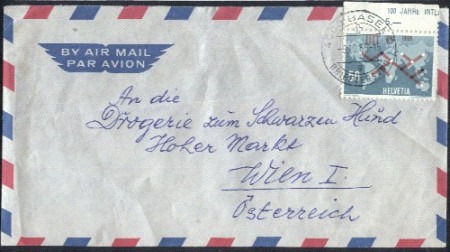 BY AIR MAIL
PAR AVION
BASEL
100 JAHRE INTL
5.—
50
HELVETIA
An die
Drogerie zum Schwarzen Hund
Hoher Markt
Wien I.
Österreich